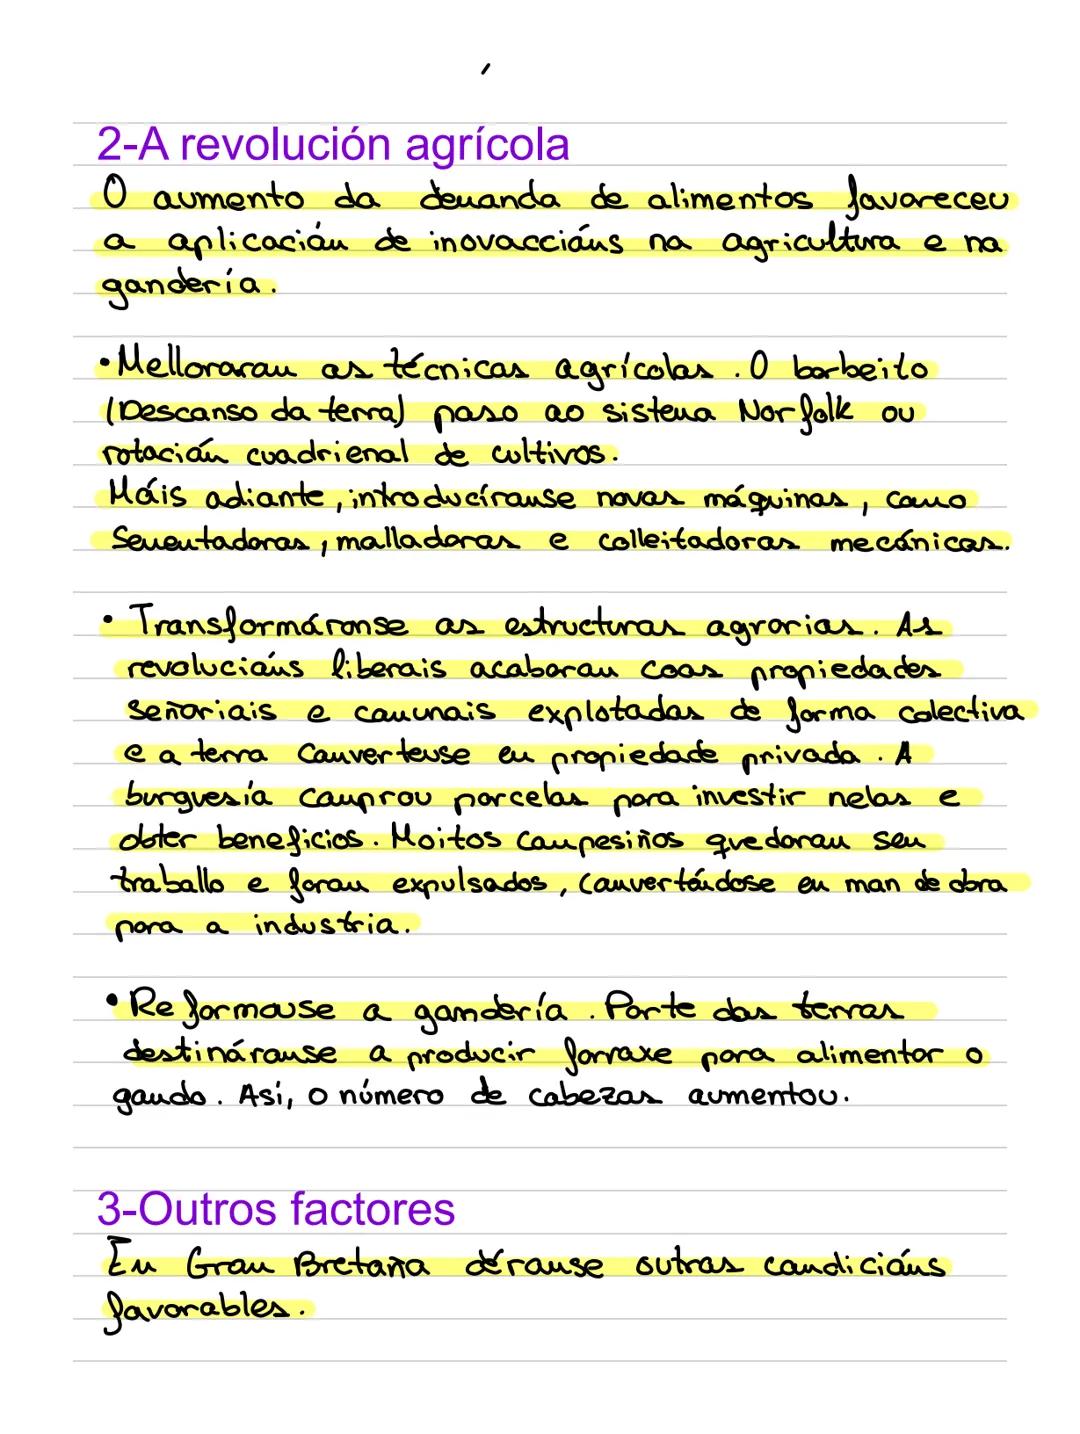 2-A revolución agrícola
O aumento da demanda de alimentos favoreceu
a aplicación de inovaccións na agricultura e na
gandería.
•Melloraron as técnicas agrícolas. O barbeito
(Descanso da terra) paso ao sistema Norfolk ou
rotación cuadrienal de cultivos.
Máis adiante, introducíronse novas máquinas, como
Sementadoras, malladoras e colleitadoras mecánicas.
• Transformáronse as estructuras agrarias. As
revolucións liberais acabaron coas propiedades
señoriais e comunais explotadas de forma colectiva
e a terra converteuse en propiedade privada. A
burguesía comprou parcelas para investir nelas e
obter beneficios. Moitos campesiños quedaron sen
traballo e foron expulsados, converténdose en man de obra
para a industria.
• Reformouse a gandería. Parte das terras
destináronse a producir forraxe para alimentar o
gando. Así, o número de cabezas aumentou.
3-Outros factores
En Gran Bretaña déronse outras condicións
favorables.